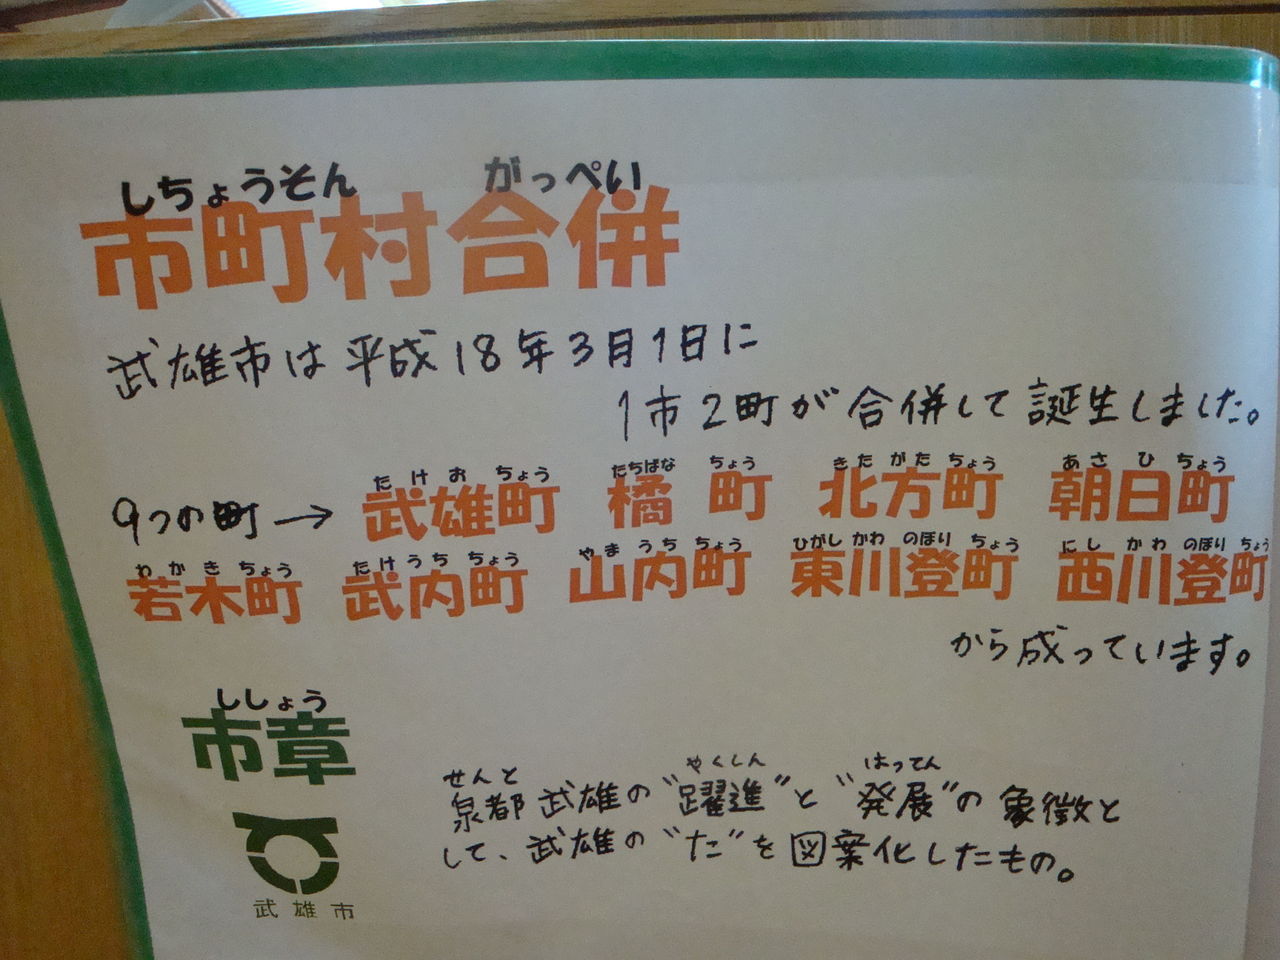 しちょうそん がっぺい
市町村合併
武雄市は平成18年3月1日に
1市2町が合併して誕生しました。
たけおちょう たちばなちょう きたがたちょう あさひちょう
9つの町→武雄町 橘町 北方町 朝日町
わかきちょう たけうちちょう やまうちちょう ひがしかわのぼりちょう にしかわのぼりちょう
若木町 武内町 山内町 東川登町 西川登町
から成っています。
ししょう
市章
せんと やくしん はってん
泉都武雄の"躍進"と"発展"の象徴と
して、武雄の"た"を図案化したもの。
武雄市